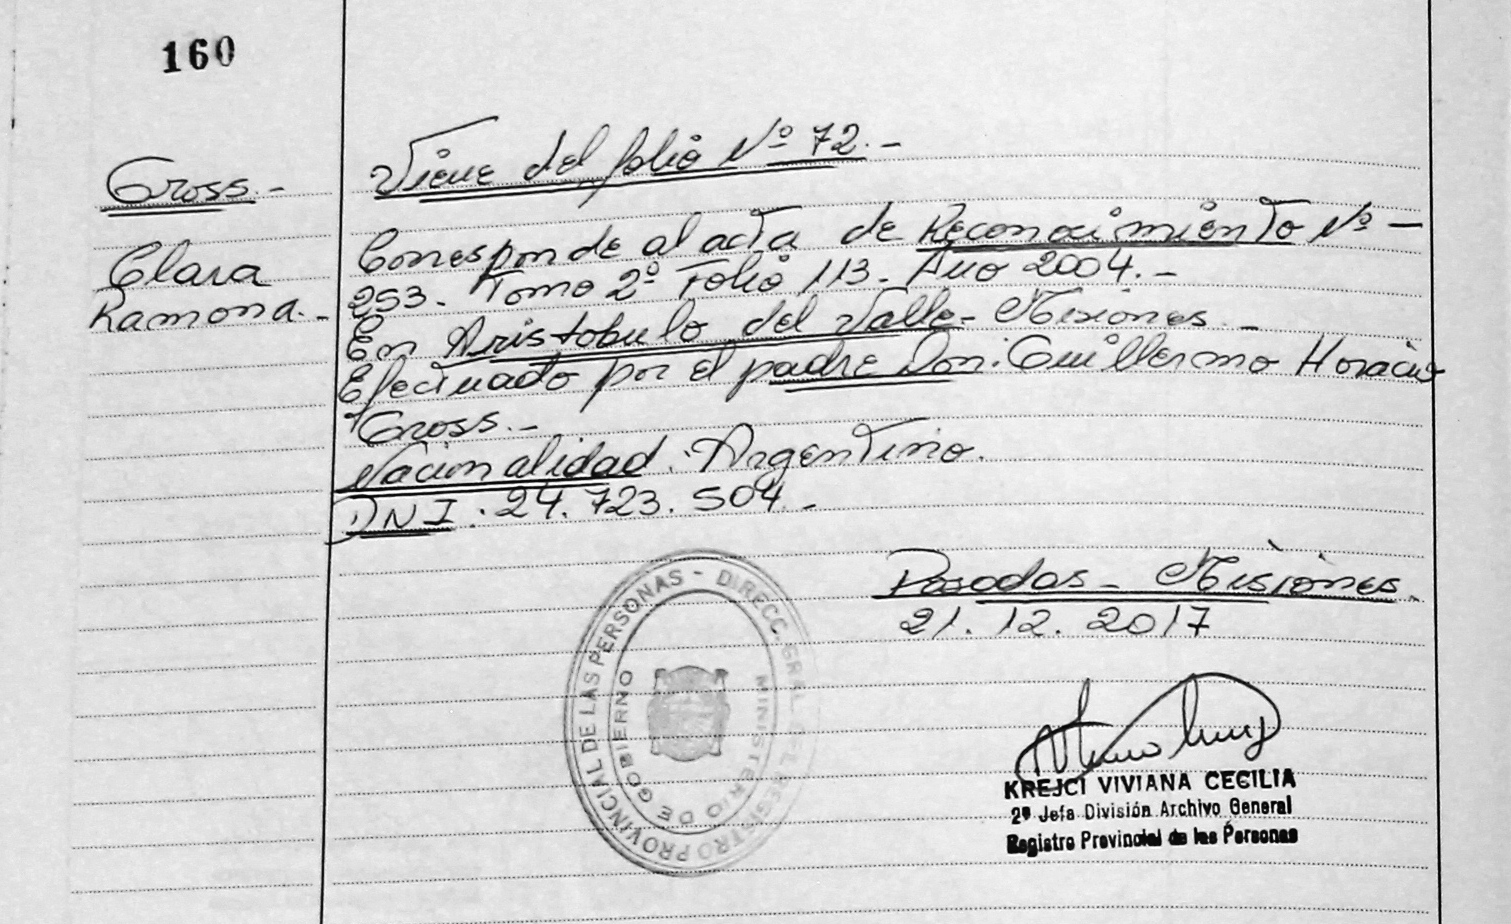 160
Gross.-
Clara
Ramona.-
Viene del folio Nº 72.-
Corresponde al acta de Reconocimiento Nº -
253. Tomo 2º Folio 113. Año 2004.-
En Aristobulo del Valle- Misiones.-
Efectuado por el padre Don: Guillermo Horacio
Gross.-
Nacionalidad. Argentino.
DNI. 24.723.504.-
Posadas - Misiones.
21.12.2017
DIRECC. GRAL. DEL REGISTRO PROVINCIAL DE LAS PERSONAS -
MINISTERIO DE GOBIERNO
KREJCI VIVIANA CECILIA
2º Jefa División Archivo General
Registro Provincial de las Personas